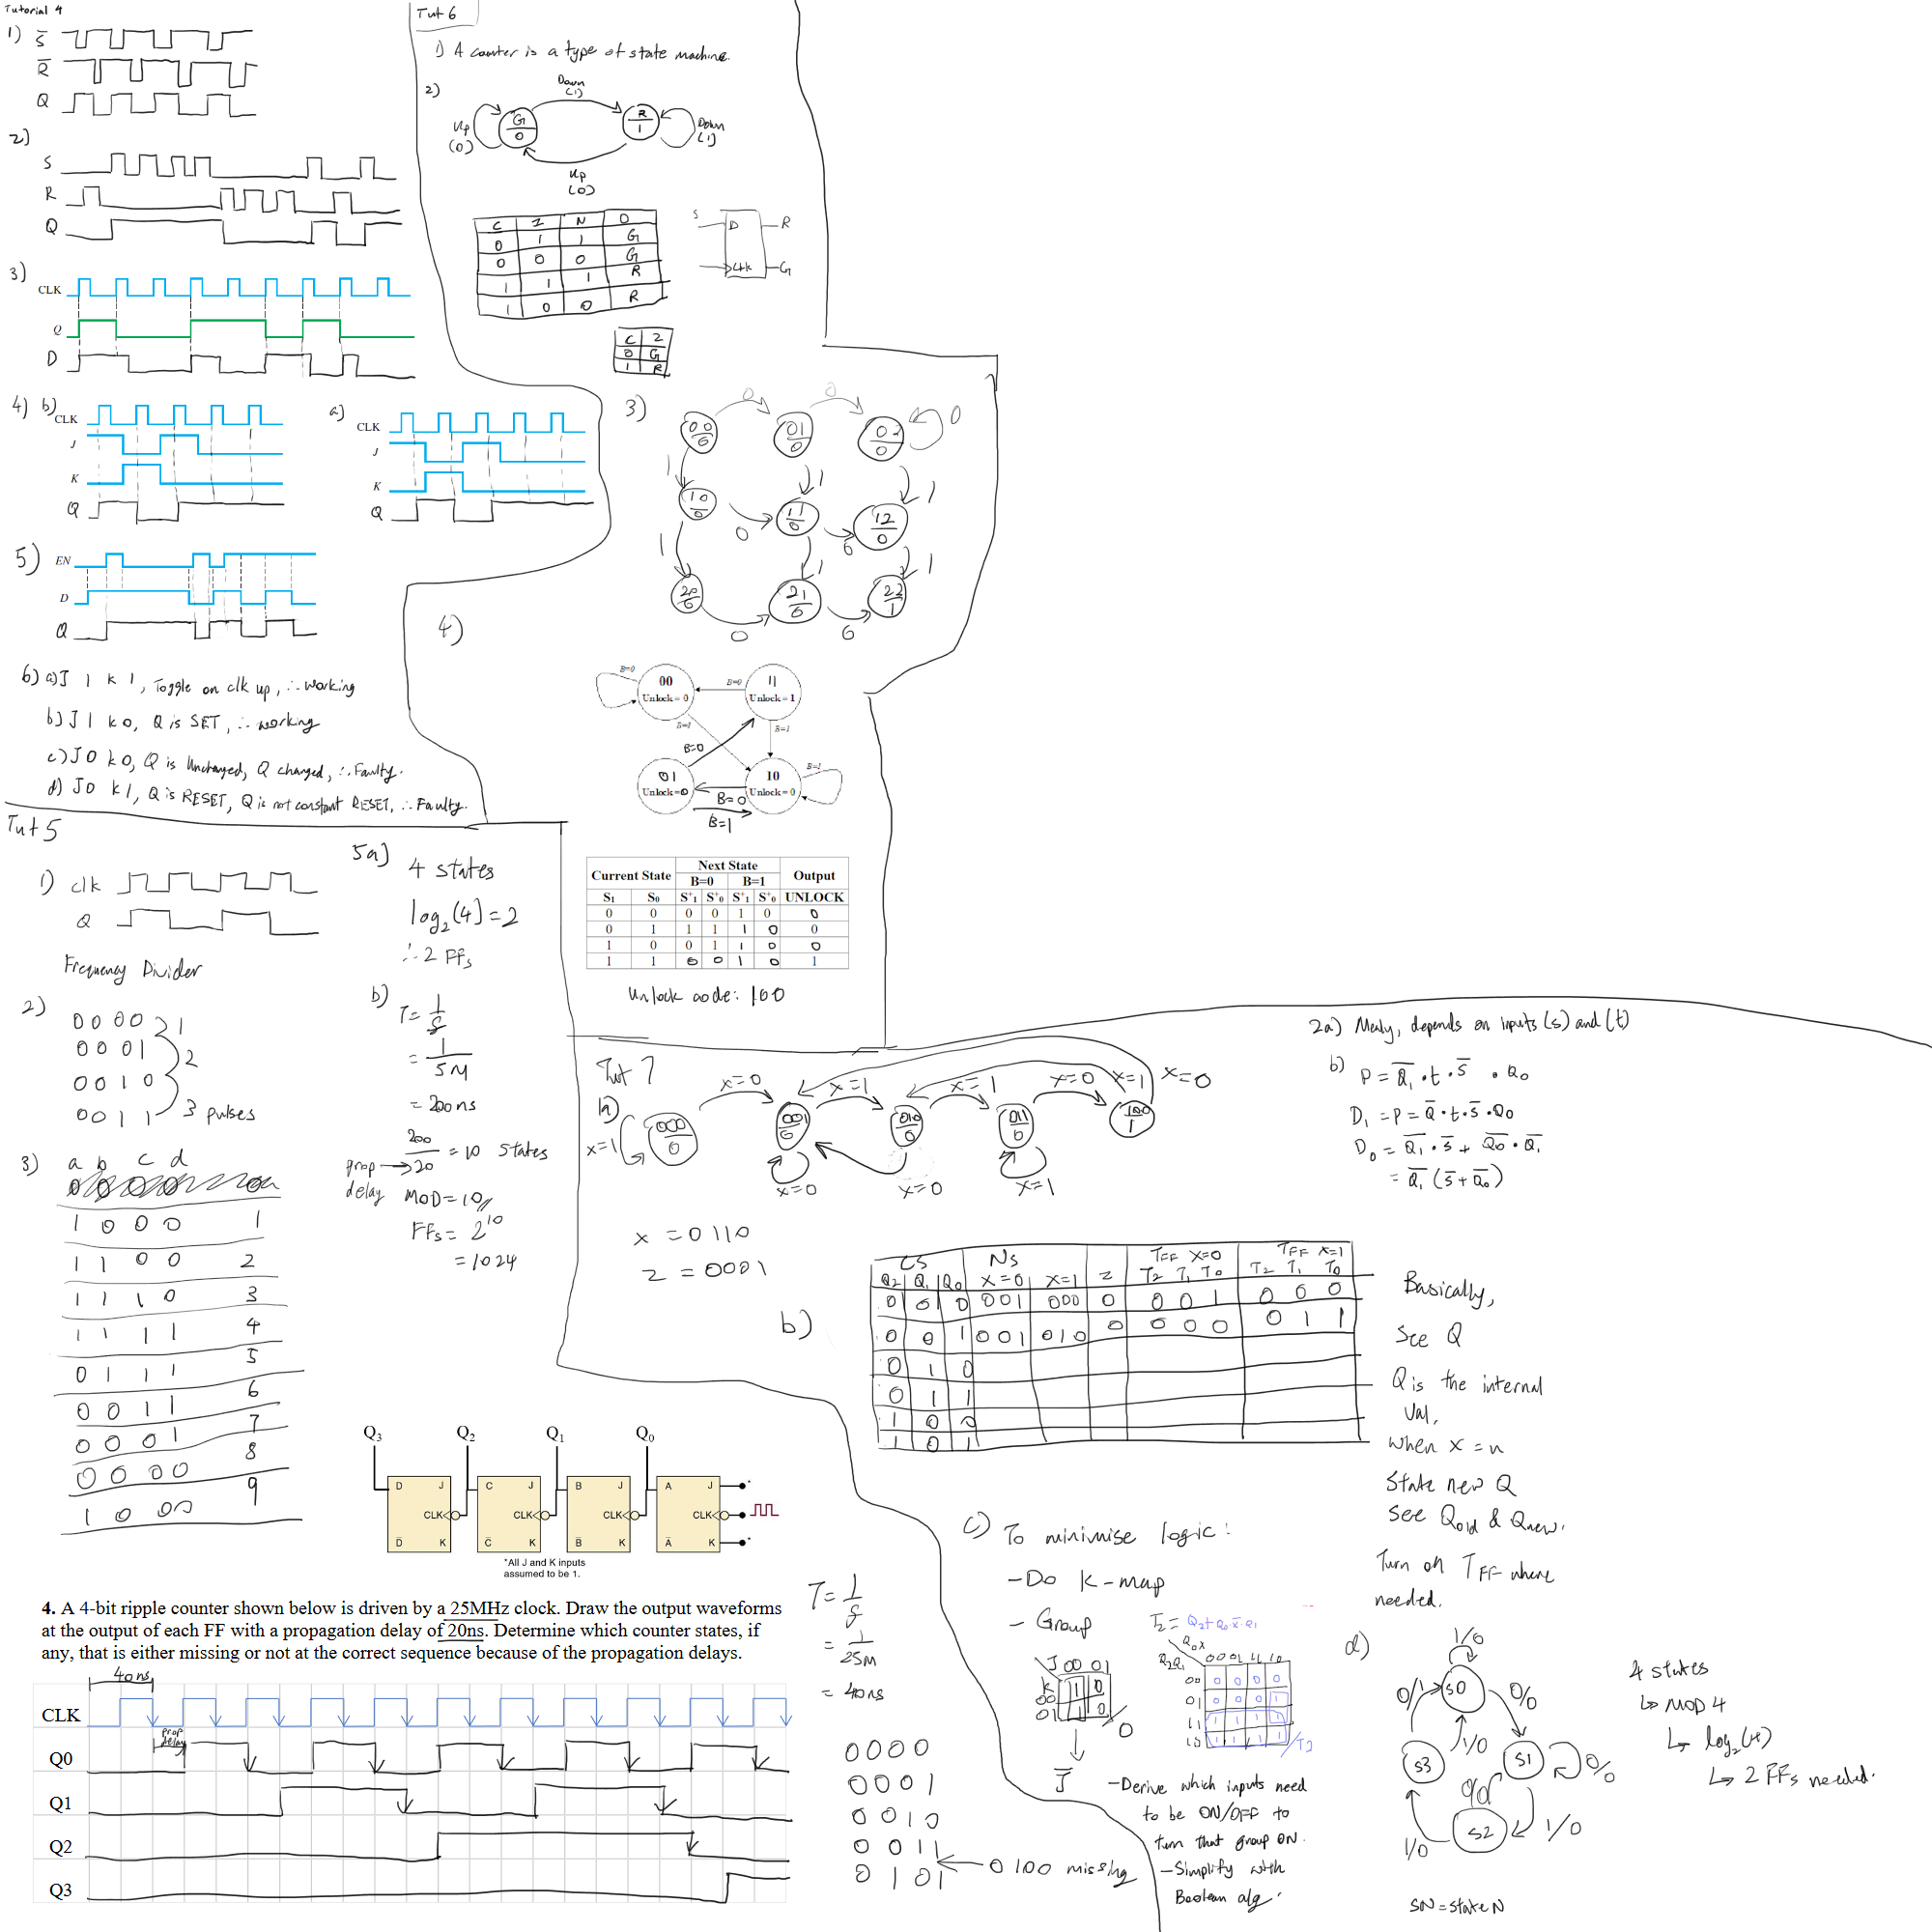 Tutorial 4
1) S̅
R̅
Q
2)
S
R
Q
3)
CLK
Q
D
4) b)
CLK
J
K
Q
a)
CLK
J
K
Q
5)
EN
D
Q
6) a) J 1 k 1, Toggle on clk up, ∴ working
b) J 1 k 0, Q is SET, ∴ working
c) J 0 k 0, Q is Unchanged, Q changed, ∴ Faulty.
d) J0 k1, Q is RESET, Q is not constant RESET, ∴ Faulty.
Tut 5
1) clk
Q
Frequency Divider
2)
0000
0001
0010
0011
1
2
3 pulses
3) a b c d
1 0 0 0 1
1 1 0 0 2
1 1 1 0 3
1 1 1 1 4
0 1 1 1 5
0 0 1 1 6
0 0 0 1 7
0 0 0 0 8
1 0 0 0 9
5a) 4 states
log₂(4)=2
∴ 2 FFs
b) T= 1/f
= 1/5M
= 200ns
200/20 = 10 states
prop delay
MOD=10
FFs = 2¹⁰
= 1024
Q3 Q2 Q1 Q0
D J C J B J A J
CLK CLK CLK CLK
D̅ K C̅ K B̅ K A̅ K
*All J and K inputs
assumed to be 1.
4. A 4-bit ripple counter shown below is driven by a 25MHz clock. Draw the output waveforms
at the output of each FF with a propagation delay of 20ns. Determine which counter states, if
any, that is either missing or not at the correct sequence because of the propagation delays.
40ns
CLK
prop delay
Q0
Q1
Q2
Q3
T= 1/f
= 1/25M
= 40ns
0000
0001
0010
0011
0101
0100 missing
Tut 6
1) A counter is a type of state machine.
2)
Down (1)
Up (0)
G/0
R/1
Down (1)
Up (0)
C I N O
0 1 1 G
0 0 0 G
1 1 1 R
1 0 0 R
S D R
CLK G
C 2
0 G
1 R
3)
0 0 0
00/0 01/0 02/0
1 1 1
10/0 11/0 12/0
0 0
1 1 1
20/0 21/0 22/1
0 0
4)
B=0
00
Unlock = 0
B=0
11
Unlock = 1
B=1
B=1
B=0
01
Unlock=0
10
Unlock = 0
B=1
B=0
B=1
Current State Next State Output
B=0 B=1
S1 S0 S⁺1 S⁺0 S⁺1 S⁺0 UNLOCK
0 0 0 0 1 0 0
0 1 1 1 1 0 0
1 0 0 1 1 0 0
1 1 0 0 1 0 1
Unlock code: 100
Tut 7
1a)
x=1 x=0 x=1 x=1 x=0 x=1 x=0
000/0 001/0 010/0 011/0 100/1
x=0 x=0 x=1
x = 0110
z = 0001
2a) Mealy, depends on inputs (s) and (t)
b) P = Q̅₁·t·s̅·Q0
D₁ = P = Q̅·t·s̅·Q0
D₀ = Q̅₁·s̅ + Q̅0·Q̅₁
= Q̅₁(s̅+Q̅0)
b)
CS NS TFF X=0 TFF X=1
Q2 Q1 Q0 X=0 X=1 Z T2 T1 T0 T2 T1 T0
0 0 0 001 000 0 0 0 1 0 0 0
0 0 1 001 010 0 0 0 0 0 1 1
0 1 0
0 1 1
1 0 0
1 0 1
Basically,
See Q
Q is the internal
val,
when x = n
State new Q
see Qold & Qnew.
Turn on TFF where
needed.
c) To minimise logic:
- Do K-map
- Group
J 00 01
K
00 1 0
01 1 0
J̅
T2 = Q2+Q0·x̅·Q1
Q0X
Q2Q1 00 01 11 10
00 0 0 0 0
01 0 0 0 1
11 1 1 1 1
10 1 1 1 1
T2
- Derive which inputs need
to be ON/OFF to
turn that group ON.
- Simplify with
Boolean alg.
d)
1/0
S0
0/1 0/0
1/0
S3 S1
0/0
S2
1/0 1/0
4 states
↳ MOD 4
↳ log₂(4)
↳ 2 FFs needed.
SN = state N